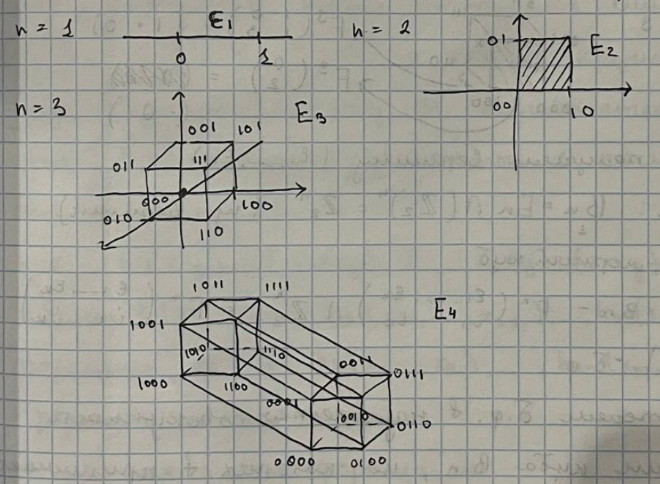 n = 1
E₁
0 1
n = 2
01
E₂
00 10
n = 3
E₃
001 101
011 111
000
100
010
110
E₄
1011 1111
1001
1010 1110
1000 1100
0011
0111
0001
0010
0110
0000 0100